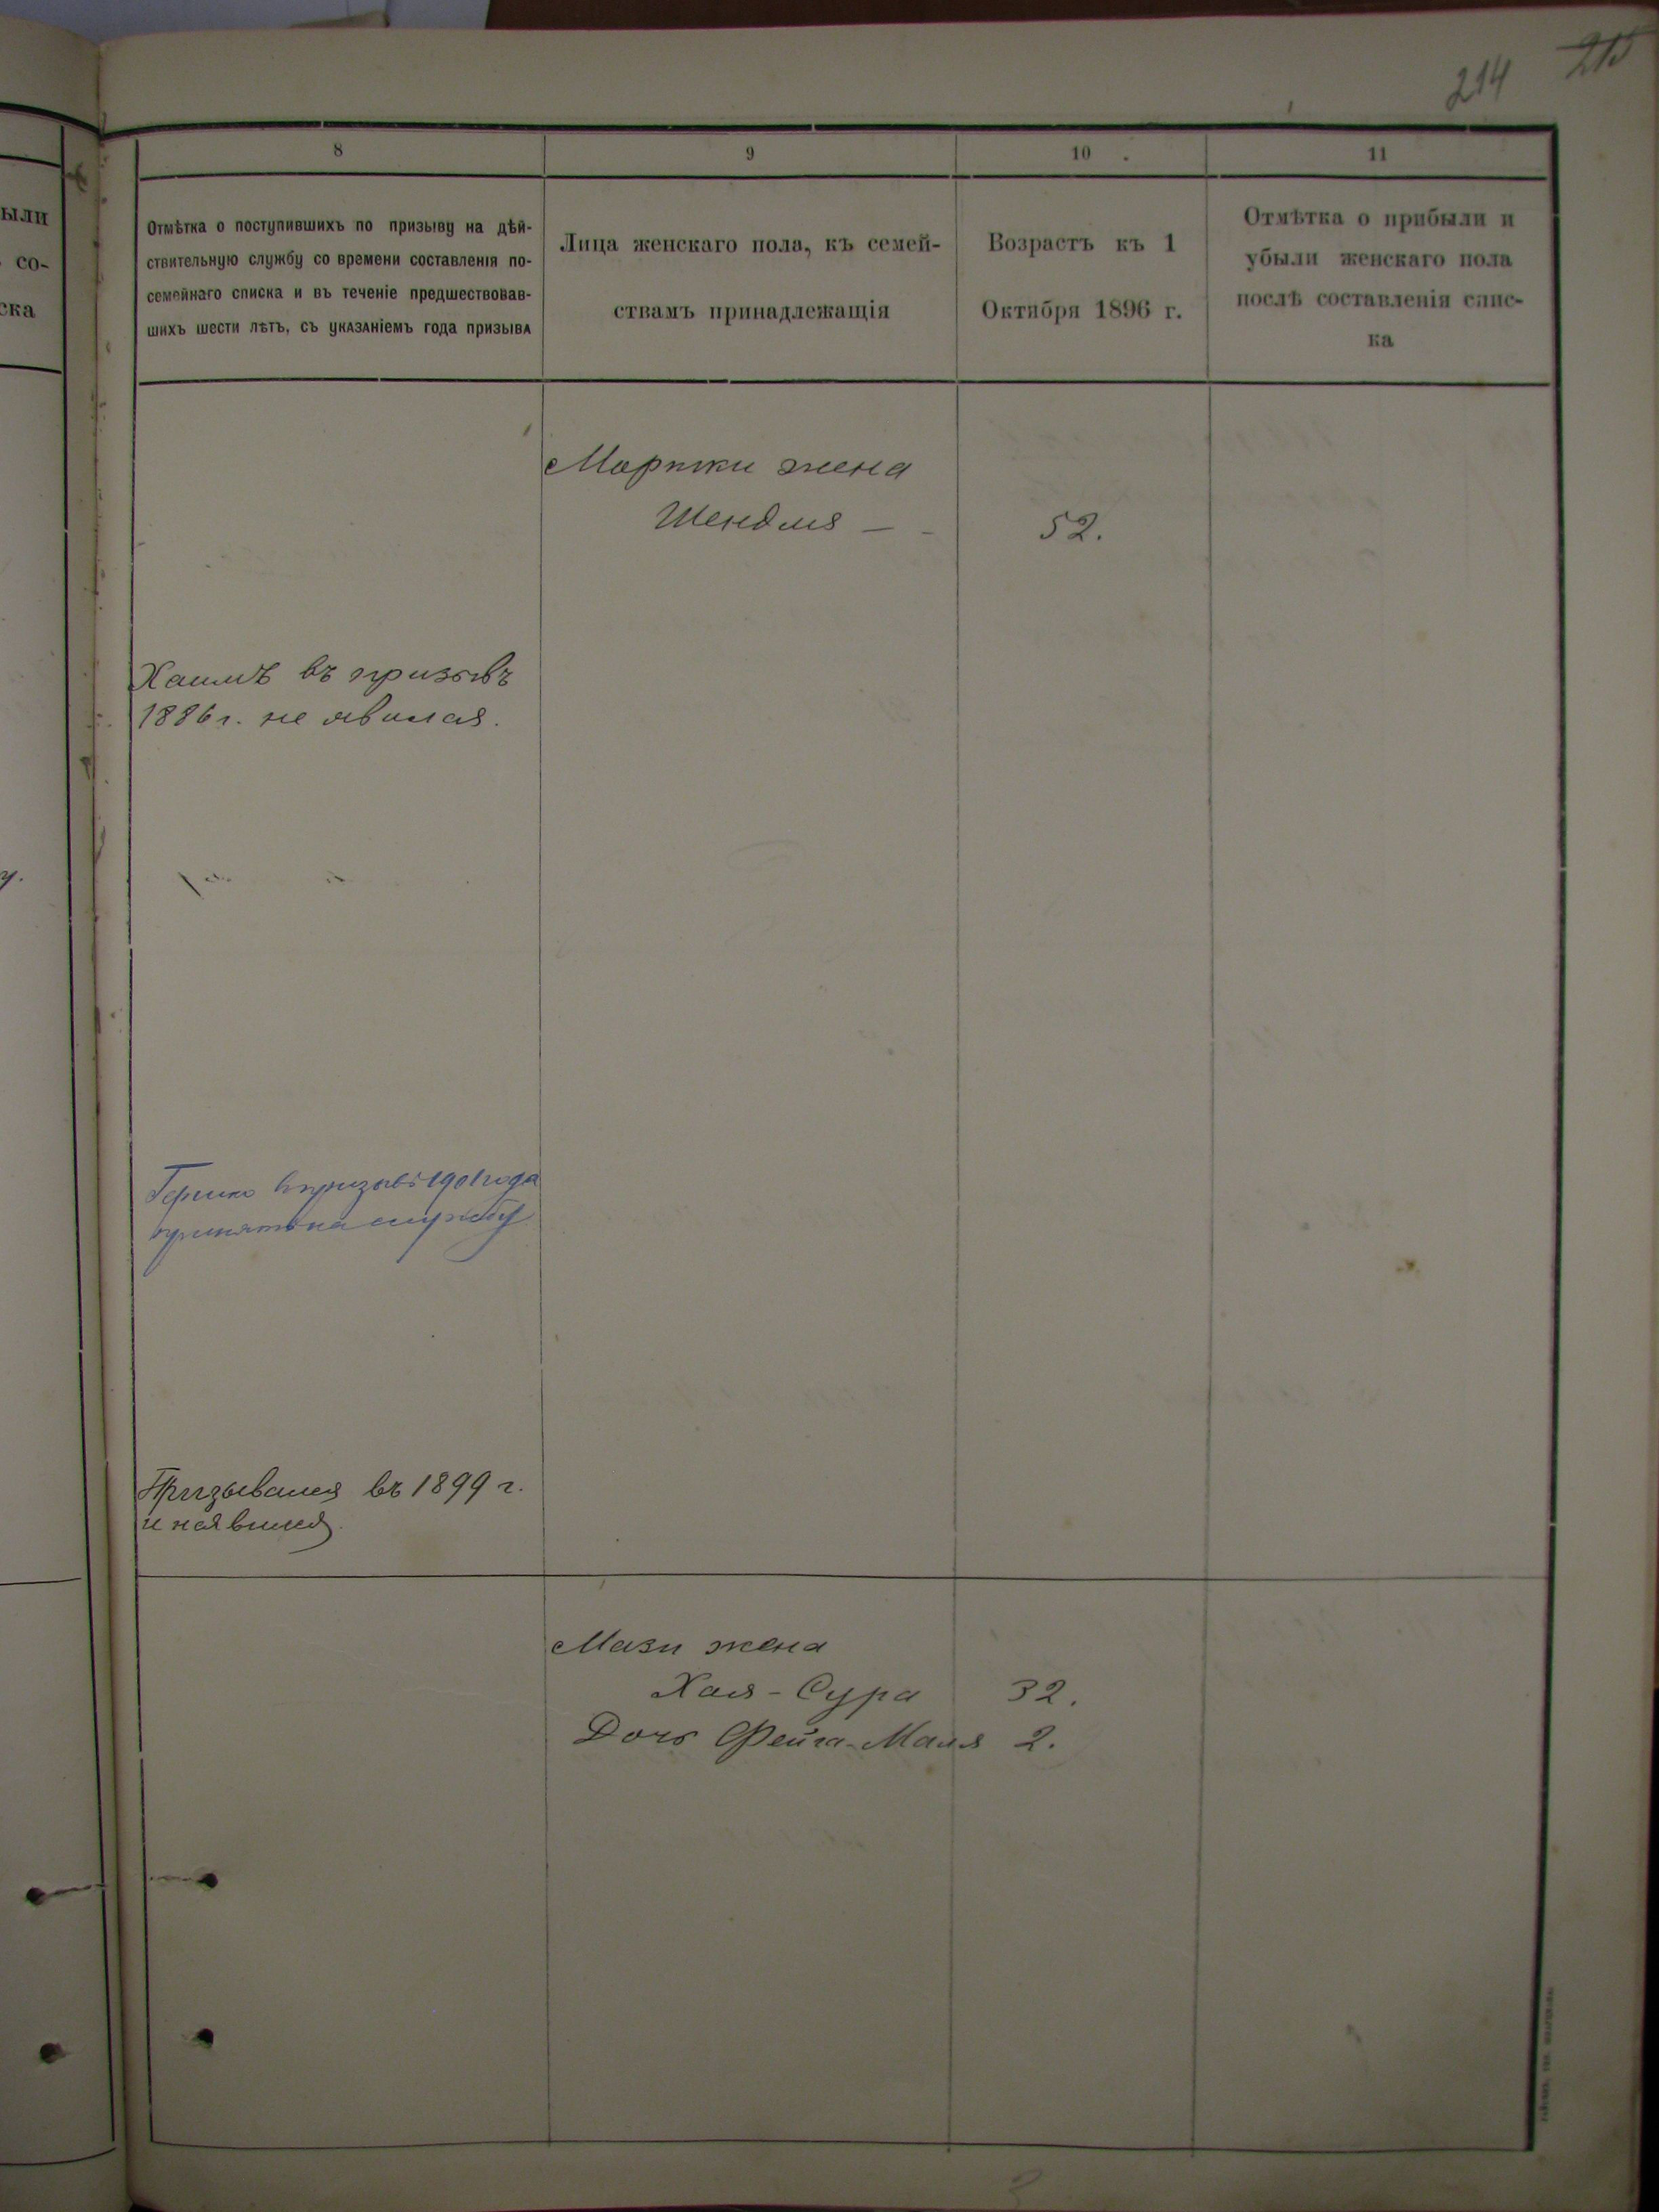 214 215
8
9
10
11
Отмѣтка о поступившихъ по призыву на дѣй-
ствительную службу со времени составленія по-
семейнаго списка и въ теченіе предшествовав-
шихъ шести лѣтъ, съ указаніемъ года призыва
Лица женскаго пола, къ семей-
ствамъ принадлежащія
Возрастъ къ 1
Октября 1896 г.
Отмѣтка о прибыли и
убыли женскаго пола
послѣ составленія спис-
ка
ыли
со-
ска
у.
жена
Шендля — 52.
въ призывъ
1886 г. не явился.
Гершко въ призывѣ 1901 года
принятъ на службу
Призывался въ 1899 г.
и неявился.
жена
Хая-Сура 32.
Дочь Фейга-Маля 2.